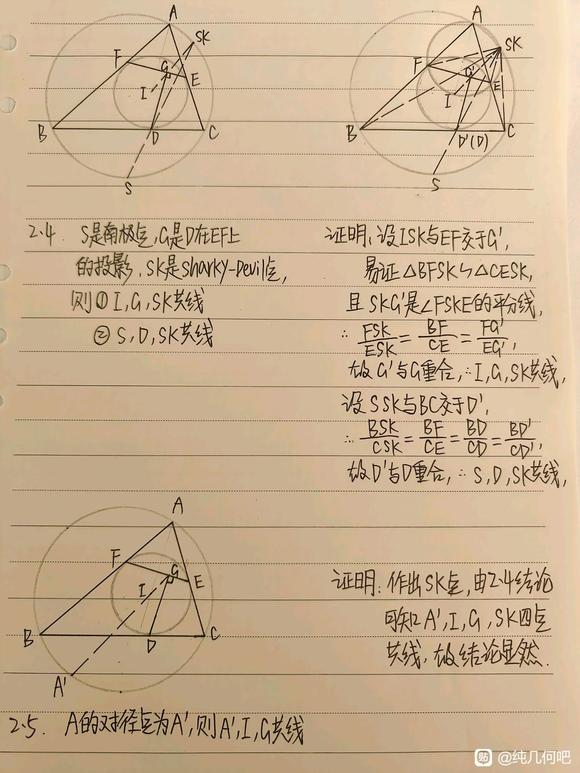 A
SK
F
G
E
I
B
D
C
S
A
SK
F
G'
E
I
B
D'(D)
C
S
2.4. S是南极点,G是D在EF上
的投影,SK是sharky-Devil点,
则① I,G,SK共线
② S,D,SK共线
证明:设ISK与EF交于G',
易证△BFSK∽△CESK,
且SKG'是∠FSKE的平分线,
∴ FSK/ESK = BF/CE = FG'/EG',
故G'与G重合,∴I,G,SK共线,
设SSK与BC交于D',
∴ BSK/CSK = BF/CE = BD/CD = BD'/CD',
故D'与D重合,∴S,D,SK共线,
A
F
G
I
E
B
D
C
A'
证明:作出SK点,由2.4结论
可知A',I,G,SK四点
共线,故结论显然.
2.5. A的对径点为A',则A',I,G共线
贴 @纯几何吧